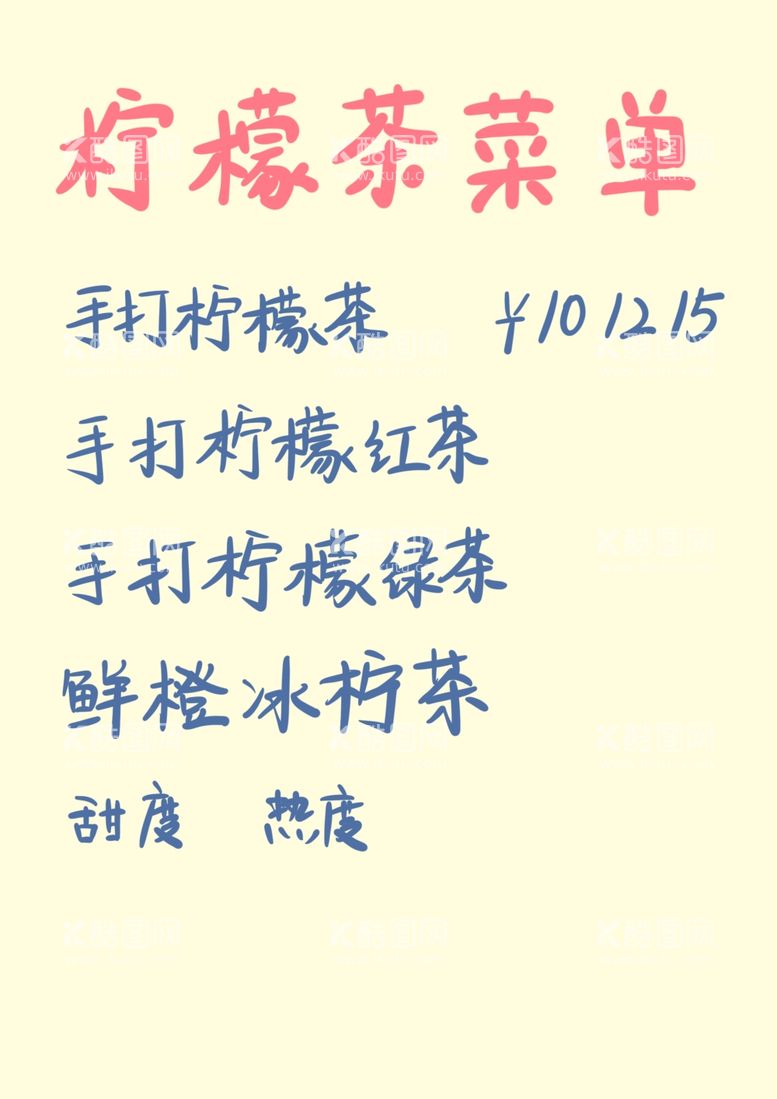 柠檬茶菜单
手打柠檬茶 ¥10 12 15
手打柠檬红茶
手打柠檬绿茶
鲜橙冰柠茶
甜度 热度